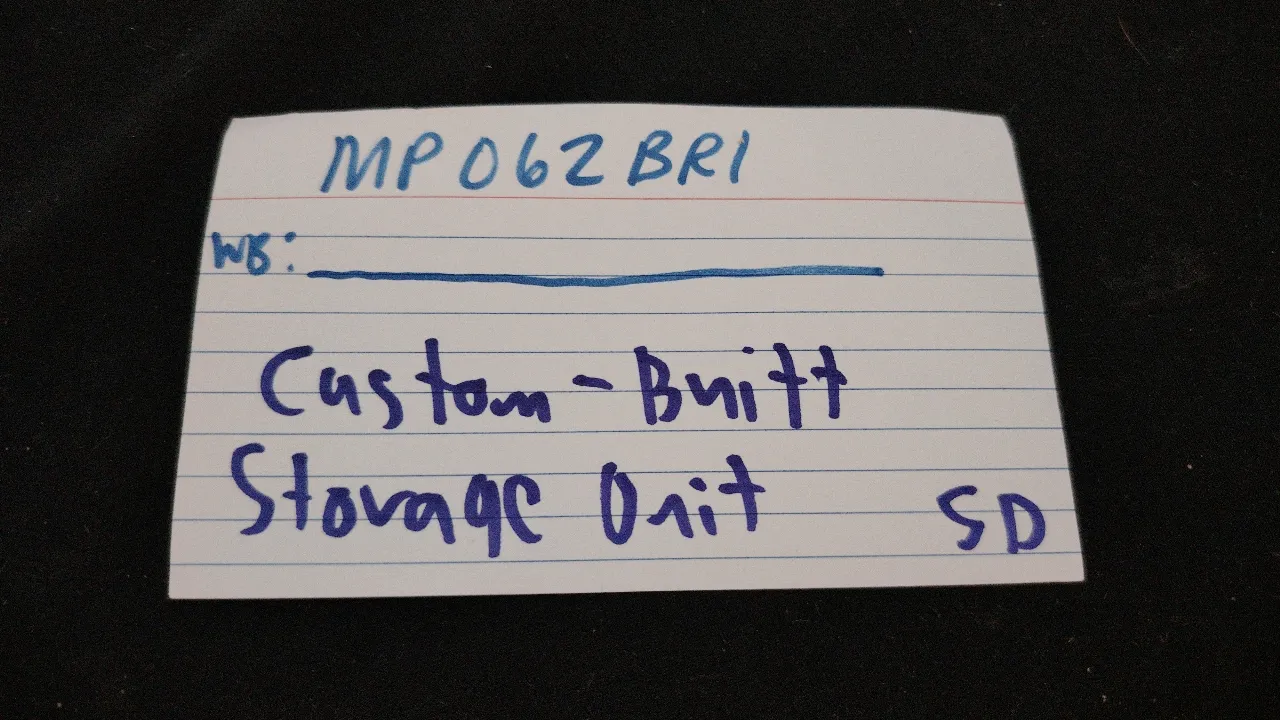 MP062BR1
WB:
Custom-Built
Storage Unit
SD